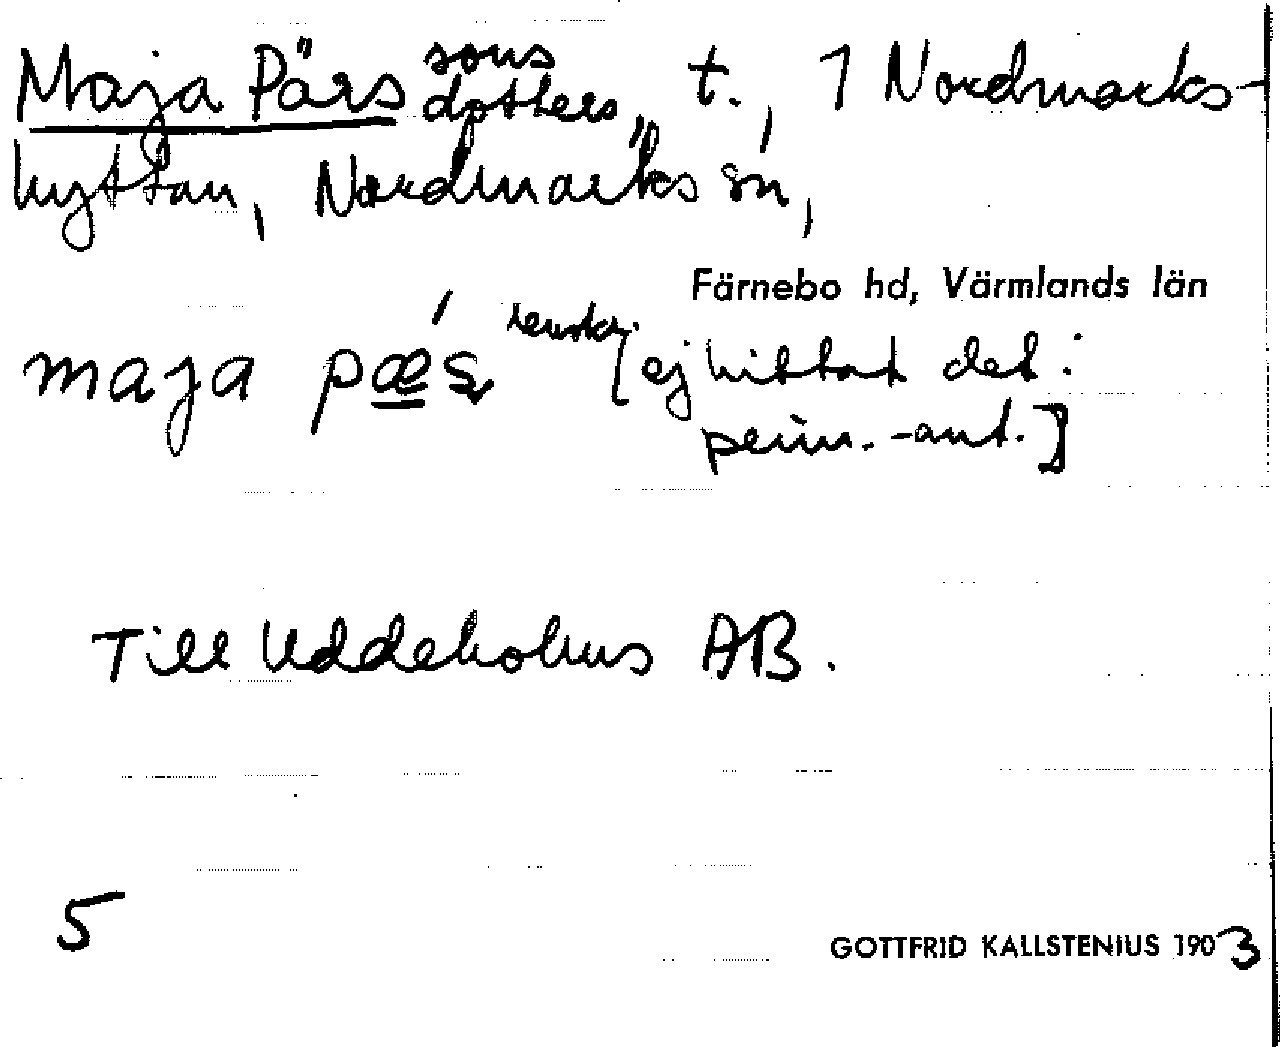 Maja Pärs sons dotters, t., 1 Nordmarks-
hyttan, Nordmarks sn,
Färnebo hd, Värmlands län
maja pǽʂ renskr. [ej hittat det i
prim.-ant.]
Till Uddeholms AB.
5
GOTTFRID KALLSTENIUS 1903